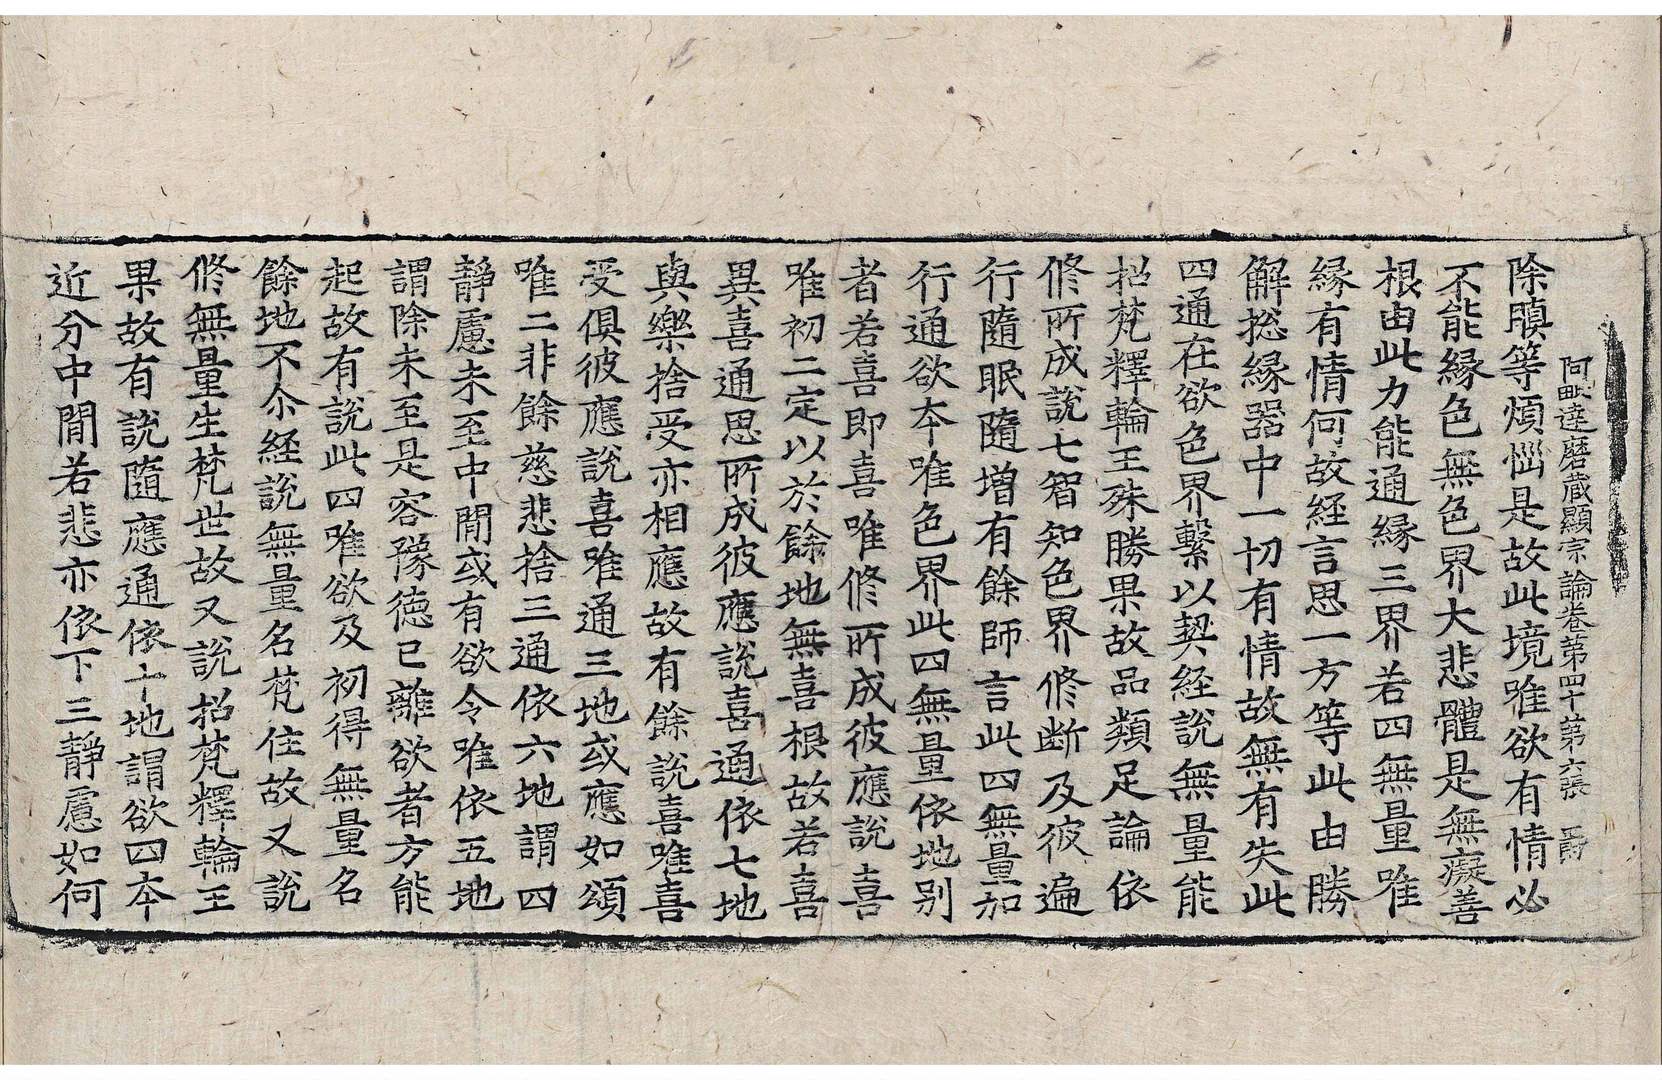 阿毗達磨蔵顯宗論卷第四十第六張 爵
除瞋等煩惱是故此境唯欲有情必
不能縁色無色界大悲體是無癡善
根由此力能通縁三界若四無量唯
縁有情何故経言思一方等此由勝
解捴縁器中一切有情故無有失此
四通在欲色界繫以契経説無量能
招梵釋輪王殊勝果故品類足論依
修所成説七智知色界修断及彼遍
行隨眠隨增有餘師言此四無量加
行通欲夲唯色界此四無量依地别
者若喜即喜唯修所成彼應説喜
唯初二定以於餘地無喜根故若喜
異喜通思所成彼應説喜通依七地
與樂捨受亦相應故有餘説喜唯喜
受俱彼應説喜唯通三地或應如頌
唯二非餘慈悲捨三通依六地謂四
靜慮未至中間或有欲令唯依五地
謂除未至是容豫德已離欲者方能
起故有説此四唯欲及初得無量名
餘地不尒経説無量名梵住故又説
修無量生梵世故又説招梵釋輪王
果故有説隨應通依十地謂欲四夲
近分中間若悲亦依下三靜慮如何